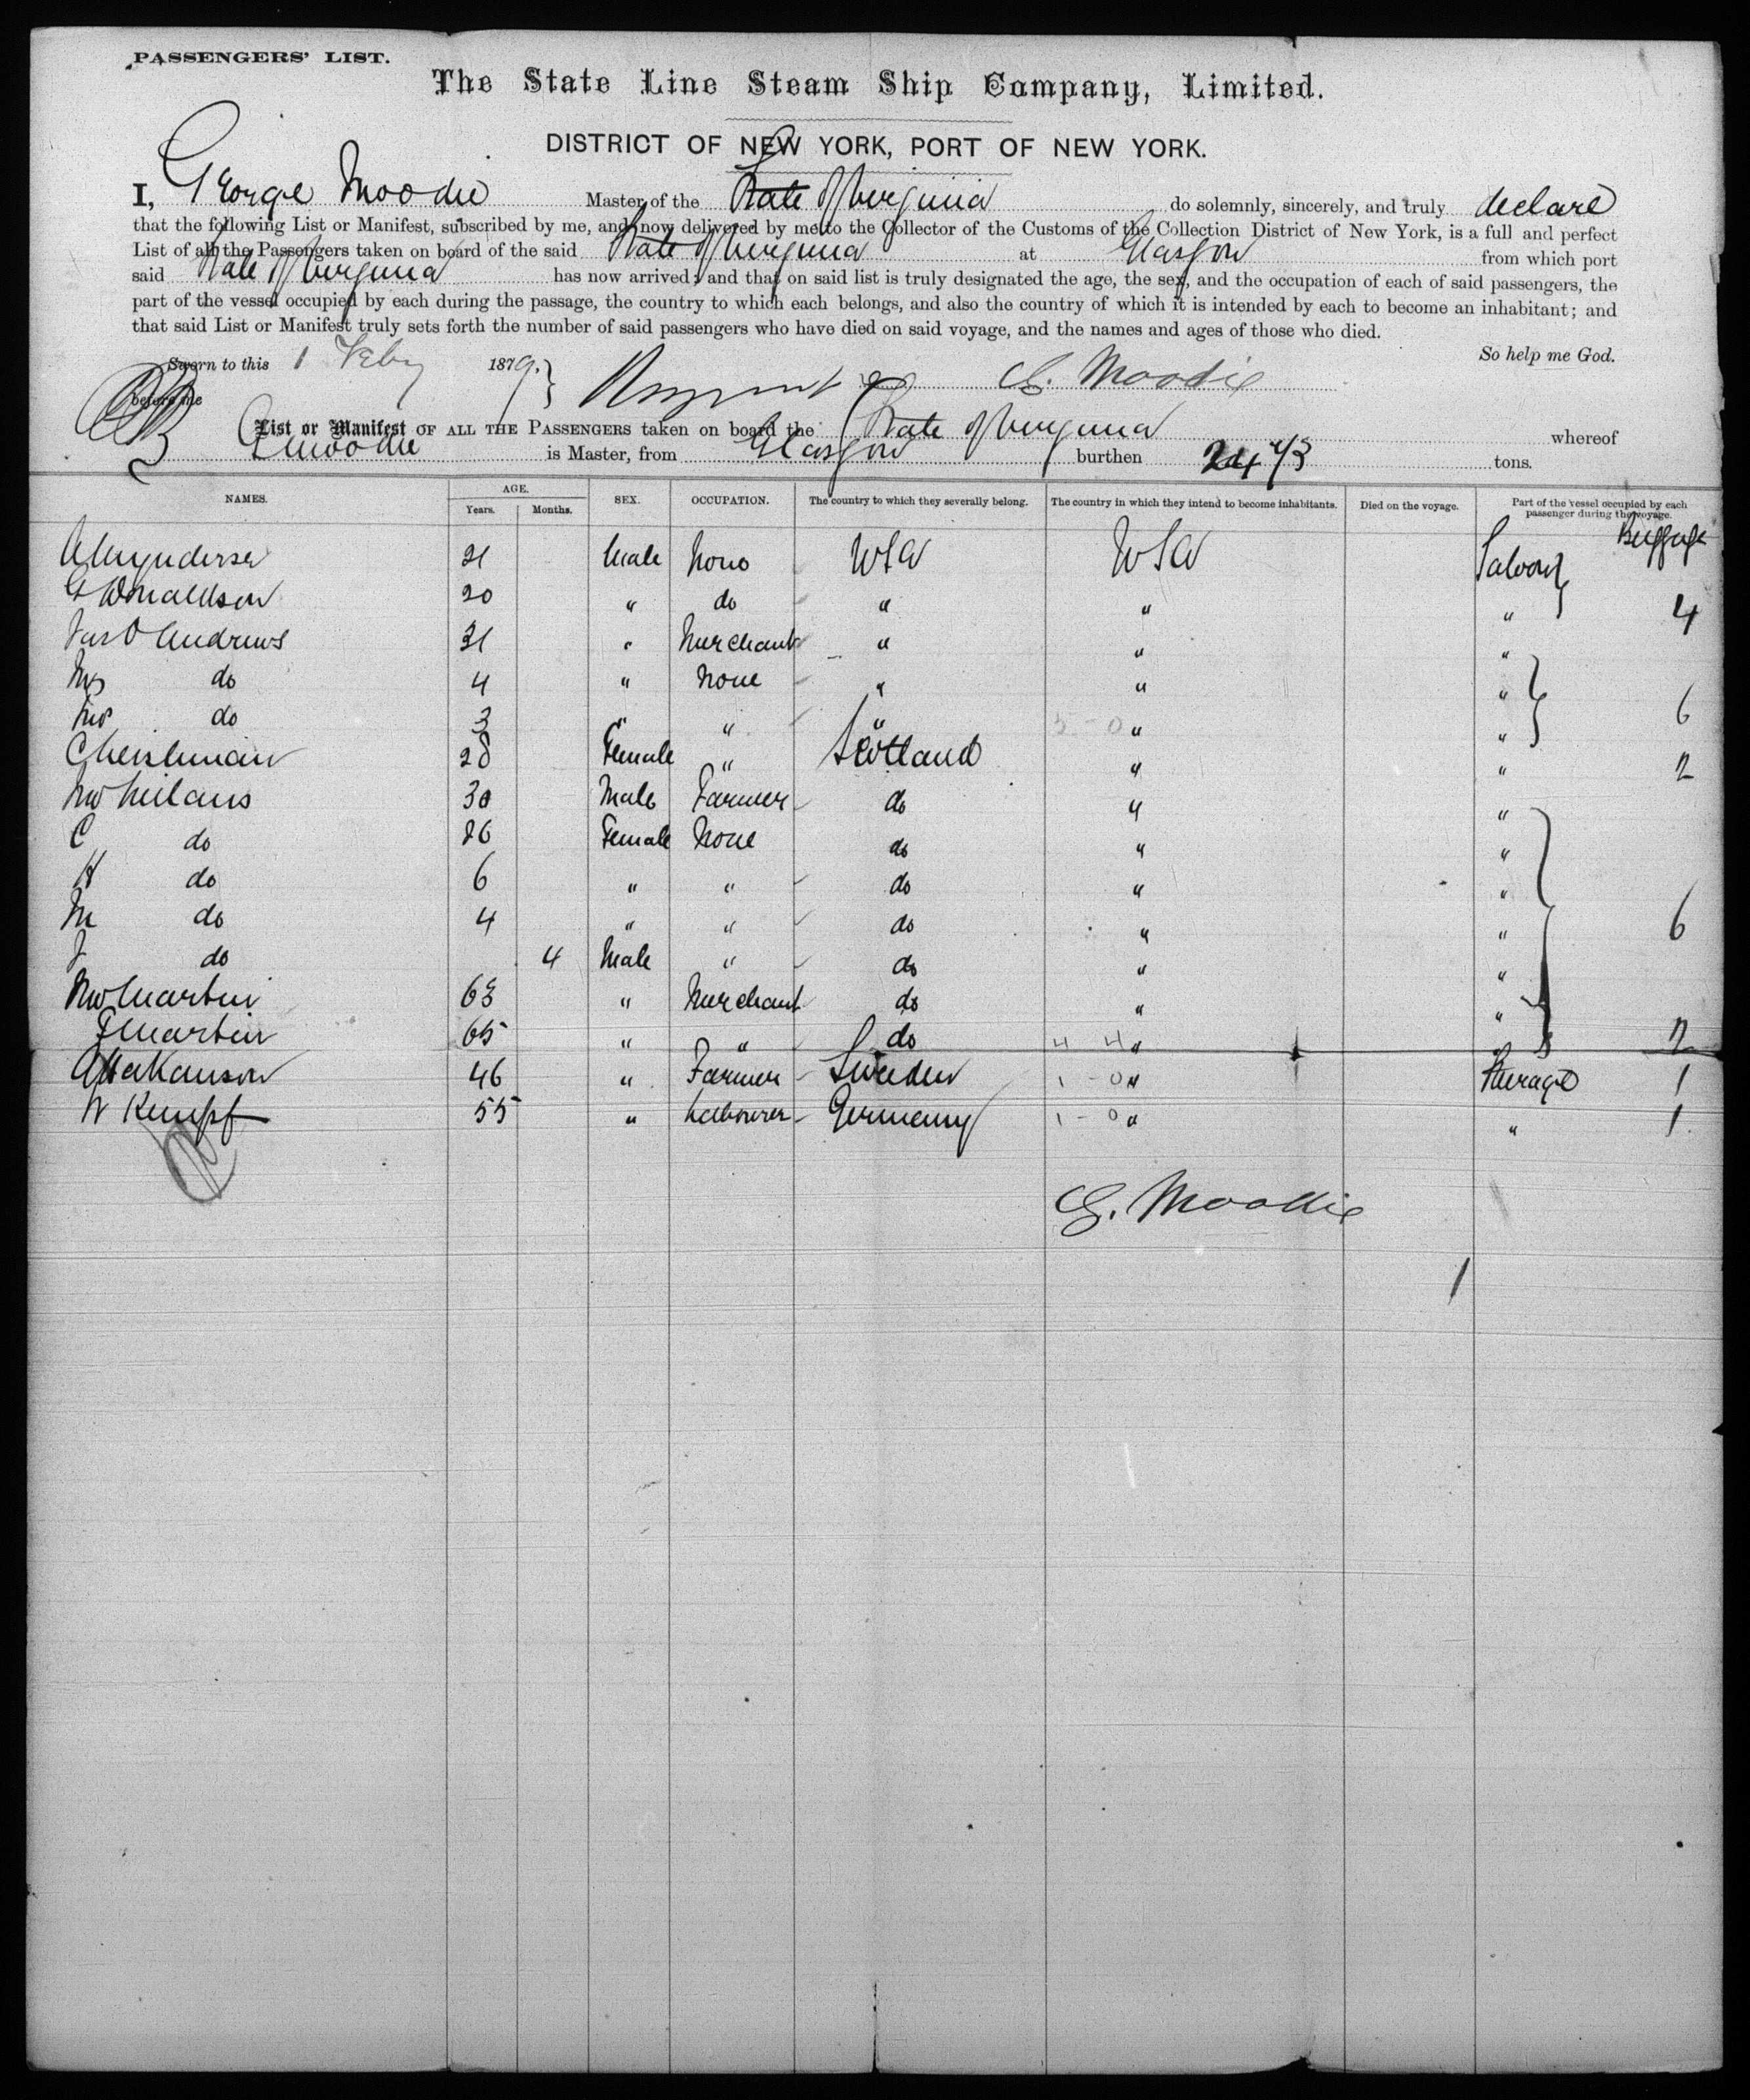 PASSENGERS' LIST.
The State Line Steam Ship Company, Limited.
DISTRICT OF NEW YORK, PORT OF NEW YORK.
I, George Moodie Master of the State of Virginia do solemnly, sincerely, and truly declare
that the following List or Manifest, subscribed by me, and now delivered by me to the Collector of the Customs of the Collection District of New York, is a full and perfect
List of all the Passengers taken on board of the said State of Virginia at Glasgow from which port
said State of Virginia has now arrived; and that on said list is truly designated the age, the sex, and the occupation of each of said passengers, the
part of the vessel occupied by each during the passage, the country to which each belongs, and also the country of which it is intended by each to become an inhabitant; and
that said List or Manifest truly sets forth the number of said passengers who have died on said voyage, and the names and ages of those who died.
So help me God.
Sworn to this 1 Feby 1879. } G. Moodie
before me
List or Manifest OF ALL THE PASSENGERS taken on board the State of Virginia whereof
G Moodie is Master, from Glasgow burthen 2473 tons.
NAMES. AGE. Years. Months. SEX. OCCUPATION. The country to which they severally belong. The country in which they intend to become inhabitants. Died on the voyage. Part of the vessel occupied by each passenger during the voyage. Baggage
21 Male None USA USA Saloon
G Donaldson 20 " do " " " 4
Jas O Andrews 31 " Merchant " " "
do 4 " None " " "
do 3 " " " " " 6
28 Female " Scotland " " 2
30 Male Farmer do " "
C do 26 Female None do " "
H do 6 " " do " "
M do 4 " " do " " 6
J do 4 Male " do " "
Martin 63 " Merchant do " "
F Martin 65 " " do 4 4 " " 2
A Hakanson 46 " Farmer Sweden 1 - 0 " Steerage 1
W Kempf 55 " Labourer Germany 1 - 0 " " 1
G. Moodie